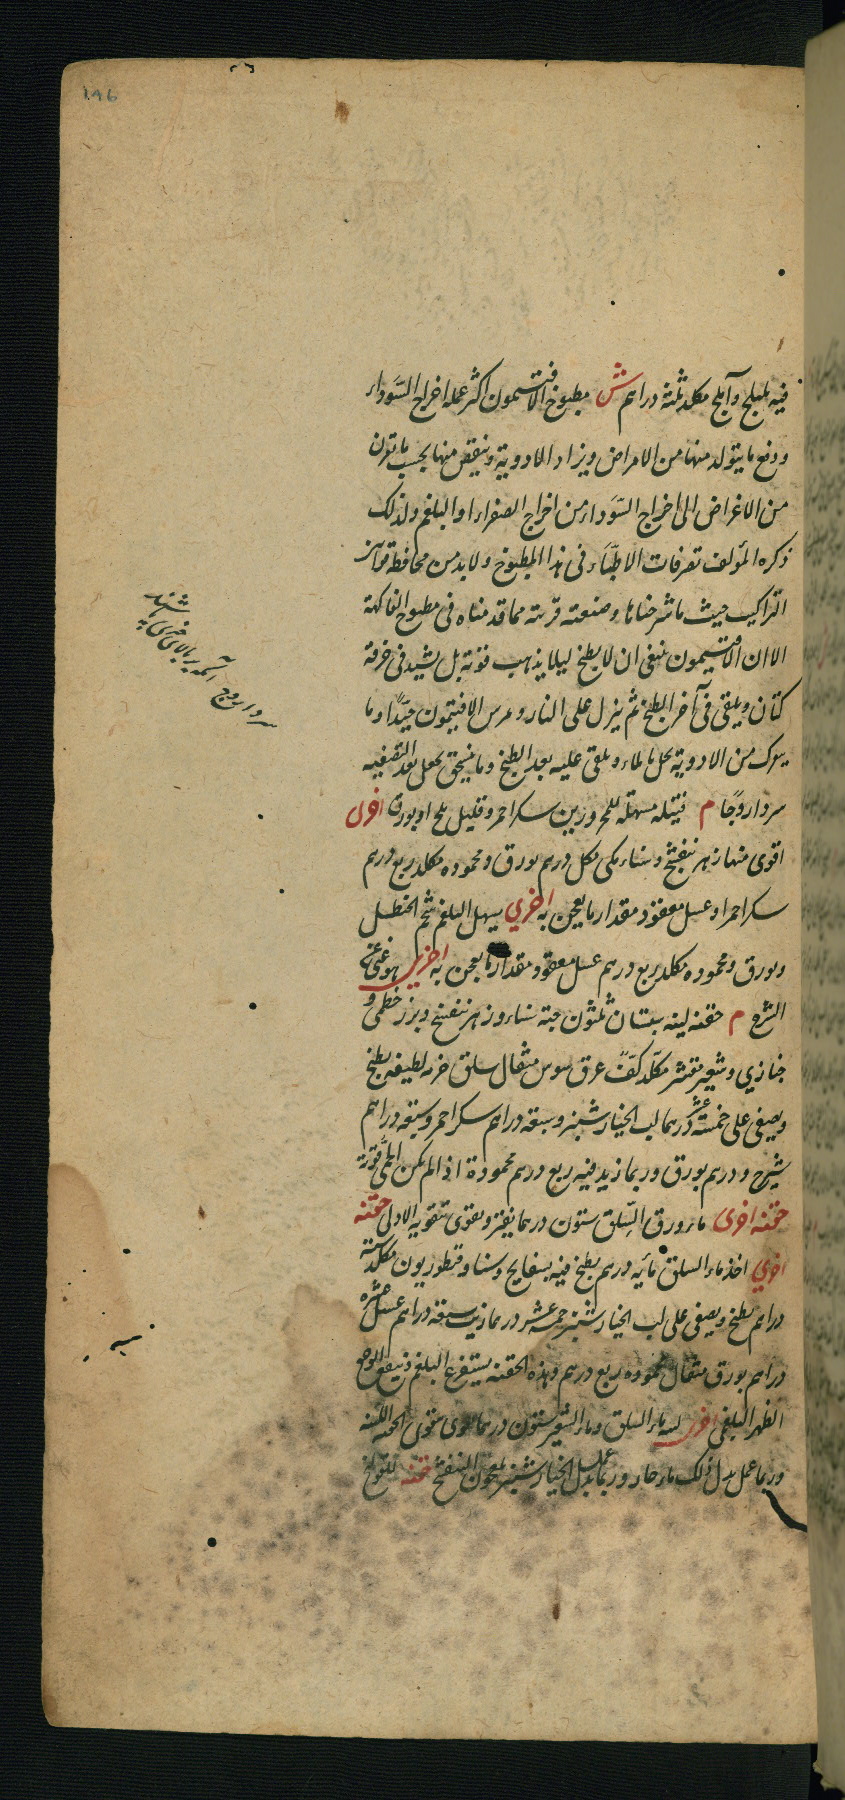 196
فيه بليلج وآملج مكلد ثلثة دراهم ش مطبوخ الافتيمون اكثر عمله اخراج السوداء
ودفع ما يتولد منها من الامراض ويزاد الادوية وينقص منها بحسب ما تقرن
من الاغراض الى اخراج السوداء من اخراج الصفراء او البلغم ولذلك
ذكره المؤلف تصرفات الاطباء فى هذا المطبوخ ولا بد من محافظة قوانين
التراكيب حيث ما شرحناها وصنعته قريبة مما قدمناه فى مطبوخ الفاكهة
الا ان الافتيمون ينبغى ان لا يطبخ ليلا يذهب قوته بل يشد فى خرقة
كتان ويلقى فى آخر الطبخ ثم ينزل على النار ومرس الافتيمون جيدا وما
من الادوية يحل بالماء ويلقى عليه بعد الطبخ وما ينسحق يجعل بعد التصفيه
سردار وجا م فتيله مسهله للمحرورين سكر احمر وقليل ملح او بورق اخرى
اقوى منها زهر بنفسج وسناء مكى مكل درهم بورق ومحموده مكلد ربع درهم
سكر احمر او عسل معقود مقدار ما يعجن به اخرى يسهل البلغم شحم الحنظل
وبورق ومحموده مكلد ربع درهم عسل معقود مقدار ما يعجن به اخرى هو غنى عن
الشرح م حقنه لينه سبستان ثلثون حبة سناء وزهر بنفسج وبزر خطمى و
خبازي وشعير مقشر مكلد كف عرق سوس مثقال سلق حزمه لطيفه يطبخ
ويصفى على خمسة عشر درهما لب الخيار شنبر وسبعة دراهم سكر احمر وسبعة دراهم
شيرج ودرهم بورق وربما زيد فيه ربع درهم محمودة اذا لم يكن الحمى قوية
حقنه اخرى ماء ورق السلق ستون درهما يفتر ويقوى تقوية الاولى حقنه
اخري اخذ ماء السلق مائه درهم يطبخ فيه بسفايج وسنا وقنطوريون مكلد ستة
دراهم يطبخ ويصفى على لب الخيار شنبر خمسه عشر درهما زيت سبعة دراهم عسل عشره
دراهم بورق مثقال محموده ربع درهم وهذه الحقنه يستفرغ البلغم وينفع لوجع
الظهر البلغمى اخرى لينه ماء السلق وماء الشعير ستون درهما يقوى بتقوى الحقنه اللينه
وربما عمل بدل ذلك ماء حار وربما بدل عسل الخيار شنبر بمعجون البنفسج حقنه للقولنج
سردار وج